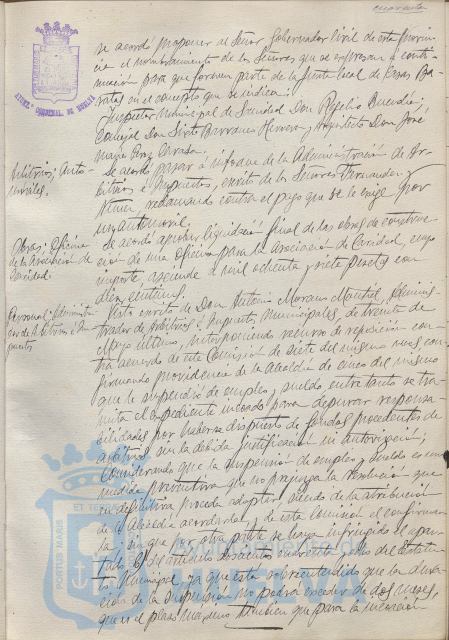 cuarenta
se acordó proponer al Señor Gobernador Civil de esta Provin-
cia el nombramiento de los Señores que se expresan a conti-
nuación para que formen parte de la Junta local de Casas Ba-
ratas en el concepto que se indica:
Inspector Municipal de Sanidad Don Rogelio Buendía;
Concejal Don Sixto Barranco Herrera; Arquitecto Don José
María Pérez Carasa.
Arbitrios: Auto-
móviles.
Se acordó pasar a informe de la Administración de Ar-
bitrios e Impuestos, escrito de los Señores Fernandez y
reclamando contra el pago que se le exige por
un automóvil.
Obras: Oficina
de la Asociación de
Caridad.
Se acordó aprobar liquidación final de las obras de construc-
ción de una Oficina para la Asociación de Caridad, cuyo
importe asciende a mil ochenta y siete pesetas con
diez centimos.
Personal: Administra-
dor de Arbitrios e Im-
puestos
Visto escrito de Don Antonio Moreno Adminis-
trador de Arbitrios e Impuestos Municipales, de treinta de
Mayo último, interponiendo recurso de reposición con-
tra acuerdo de esta Comisión de siete del mismo mes con-
firmando providencia de la Alcaldia de cinco del mismo
que le suspendió de empleo y sueldo entretanto se tra-
mita el expediente incoado para depurar responsa-
bilidades por haberse dispuesto de fondos procedentes de
arbitrios sin la debida justificación ni autorización;
Considerando que la suspensión de empleo y sueldo es una
medida preventiva que no prejuzga la resolución que
en definitiva proceda adoptar siendo de la atribución
de la Alcaldia acordarla, y de esta Comisión el confirmar-
la, sin que por otra parte se haya infringido el apar-
tado del artículo doscientos cuarenta y ocho del Estatu-
to Municipal, ya que está sobreentendido que la dura-
ción de la suspensión no podrá exceder de dos meses,
que es el plazo máximo también que para la incoación